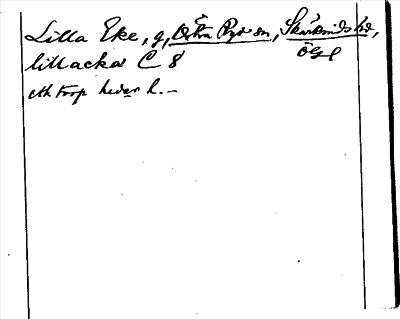 Lilla Eke, g, Östra Ryd sn, Skärkinds hd,
Ögl
lillacka C 8
ett torp